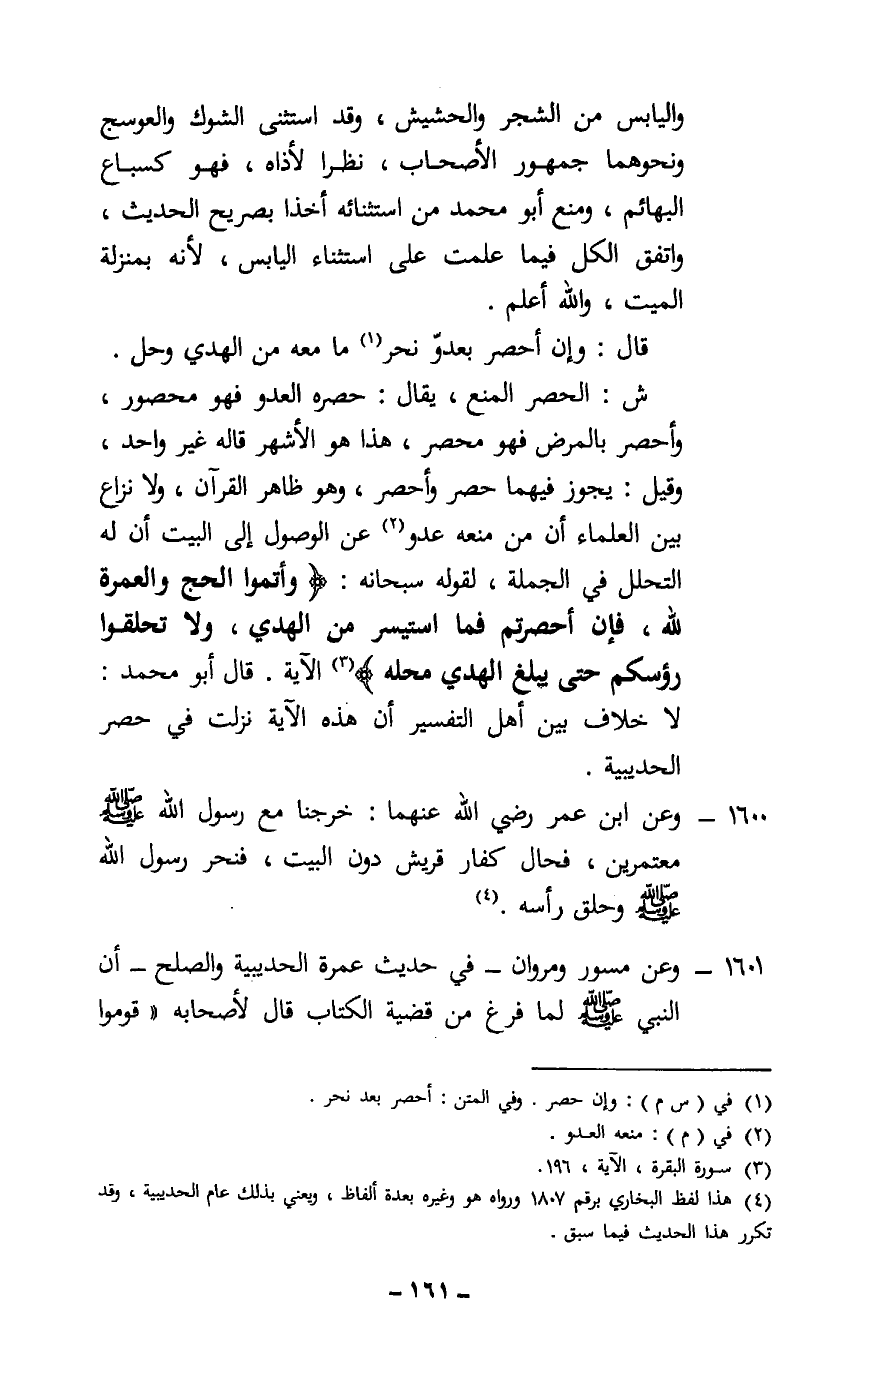 واليابس من الشجر والحشيش ، وقد استثنى الشوك والعوسج
ونحوهما جمهور الأصحاب ، نظرا لأذاه ، فهو كسباع
البهائم ، ومنع أبو محمد من استثنائه أخذا بصريح الحديث ،
واتفق الكل فيما علمت على استثناء اليابس ، لأنه بمنزلة
الميت ، والله أعلم .
قال : وإن أحصر بعدوّ نحر(١) ما معه من الهدي وحل .
ش : الحصر المنع ، يقال : حصره العدو فهو محصور ،
وأحصر بالمرض فهو محصر ، هذا هو الأشهر قاله غير واحد ،
وقيل : يجوز فيهما حصر وأحصر ، وهو ظاهر القرآن ، ولا نزاع
بين العلماء أن من منعه عدو(٢) عن الوصول إلى البيت أن له
التحلل في الجملة ، لقوله سبحانه : ﴿ وأتموا الحج والعمرة
لله ، فإن أحصرتم فما استيسر من الهدي ، ولا تحلقوا
رؤسكم حتى يبلغ الهدي محله ﴾(٣) الآية . قال أبو محمد :
لا خلاف بين أهل التفسير أن هذه الآية نزلت في حصر
الحديبية .
١٦٠٠ ــ وعن ابن عمر رضي الله عنهما : خرجنا مع رسول الله ﷺ
معتمرين ، فحال كفار قريش دون البيت ، فنحر رسول الله
ﷺ وحلق رأسه .(٤)
١٦٠١ ــ وعن مسور ومروان ــ في حديث عمرة الحديبية والصلح ــ أن
النبي ﷺ لما فرغ من قضية الكتاب قال لأصحابه « قوموا
(١) في ( س م ) : وإن حصر . وفي المتن : أحصر بعد نحر .
(٢) في ( م ) : منعه العدو .
(٣) سورة البقرة ، الآية ، ١٩٦.
(٤) هذا لفظ البخاري برقم ١٨٠٧ ورواه هو وغيره بعدة ألفاظ ، ويعني بذلك عام الحديبية ، وقد
تكرر هذا الحديث فيما سبق .
ــ ١٦١ ــ